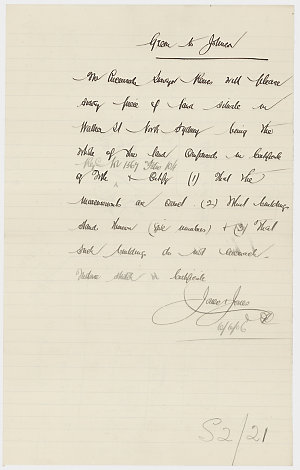 Green to Johnson
Mr Surveyor will please
survey piece of land situate in
Walker St North Sydney being the
whole of the land comprised in Certificate
of Title & Certify (1) That the
measurements are correct (2) What buildings
stand thereon (give numbers) & (3) That
such buildings do not encroach.
sketch in Certificate
Jones & Jones
S2/21